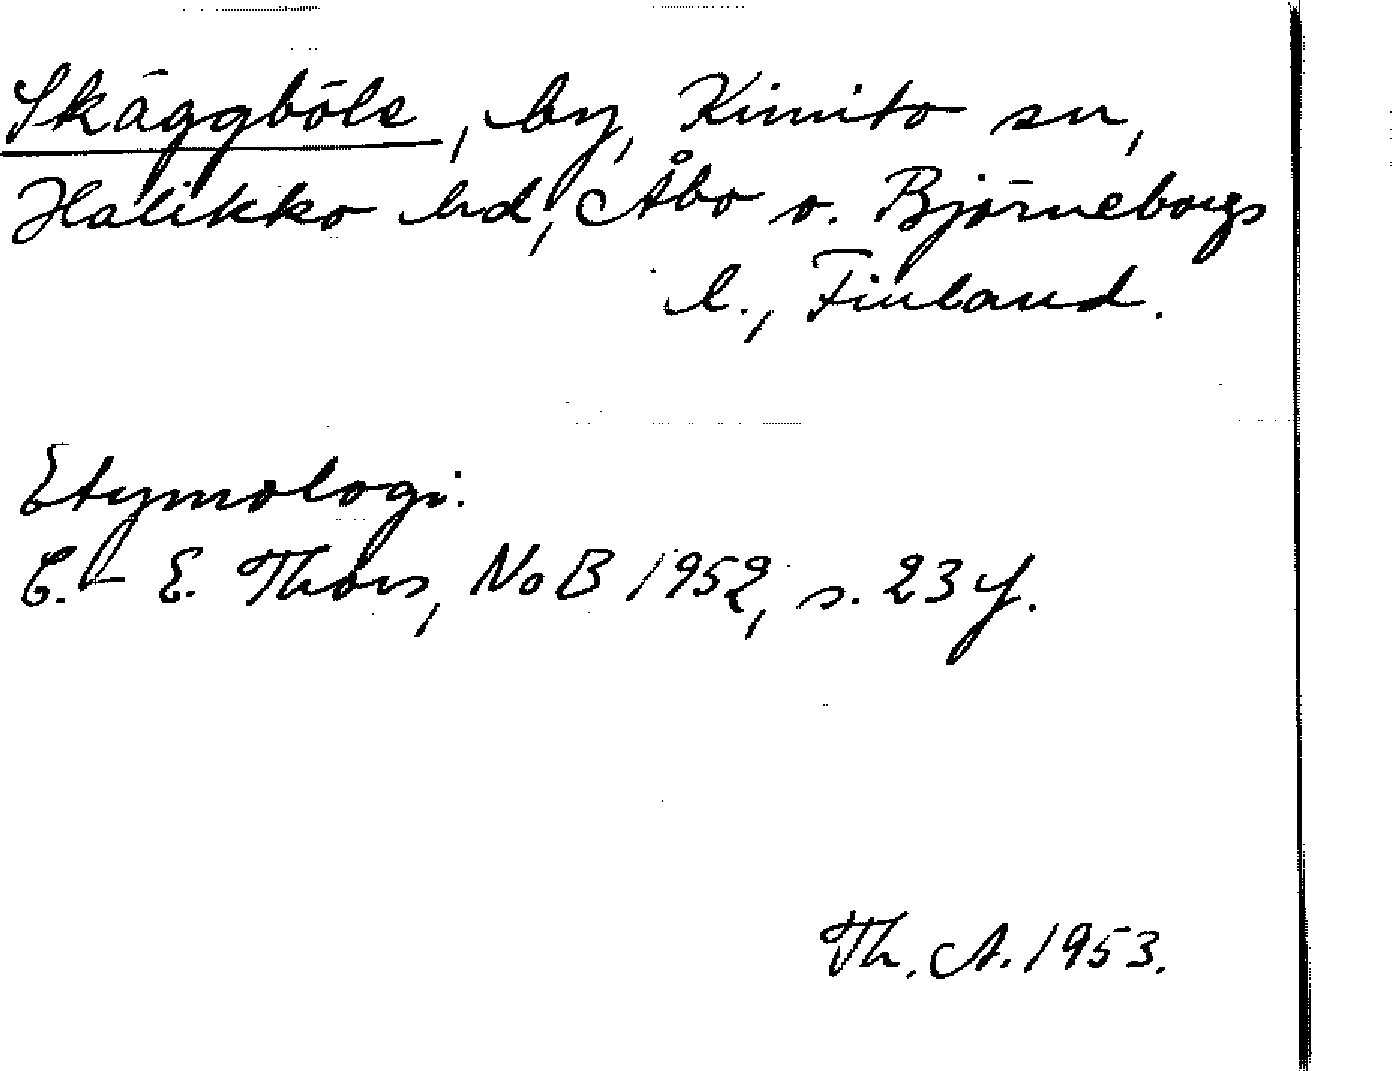 Skäggböle, by, Kimito sn,
Halikko hd, Åbo o. Björneborgs
l., Finland.
Etymologi.
C.-E. Thors, NoB 1952, s. 23 f.
Th. A. 1953.